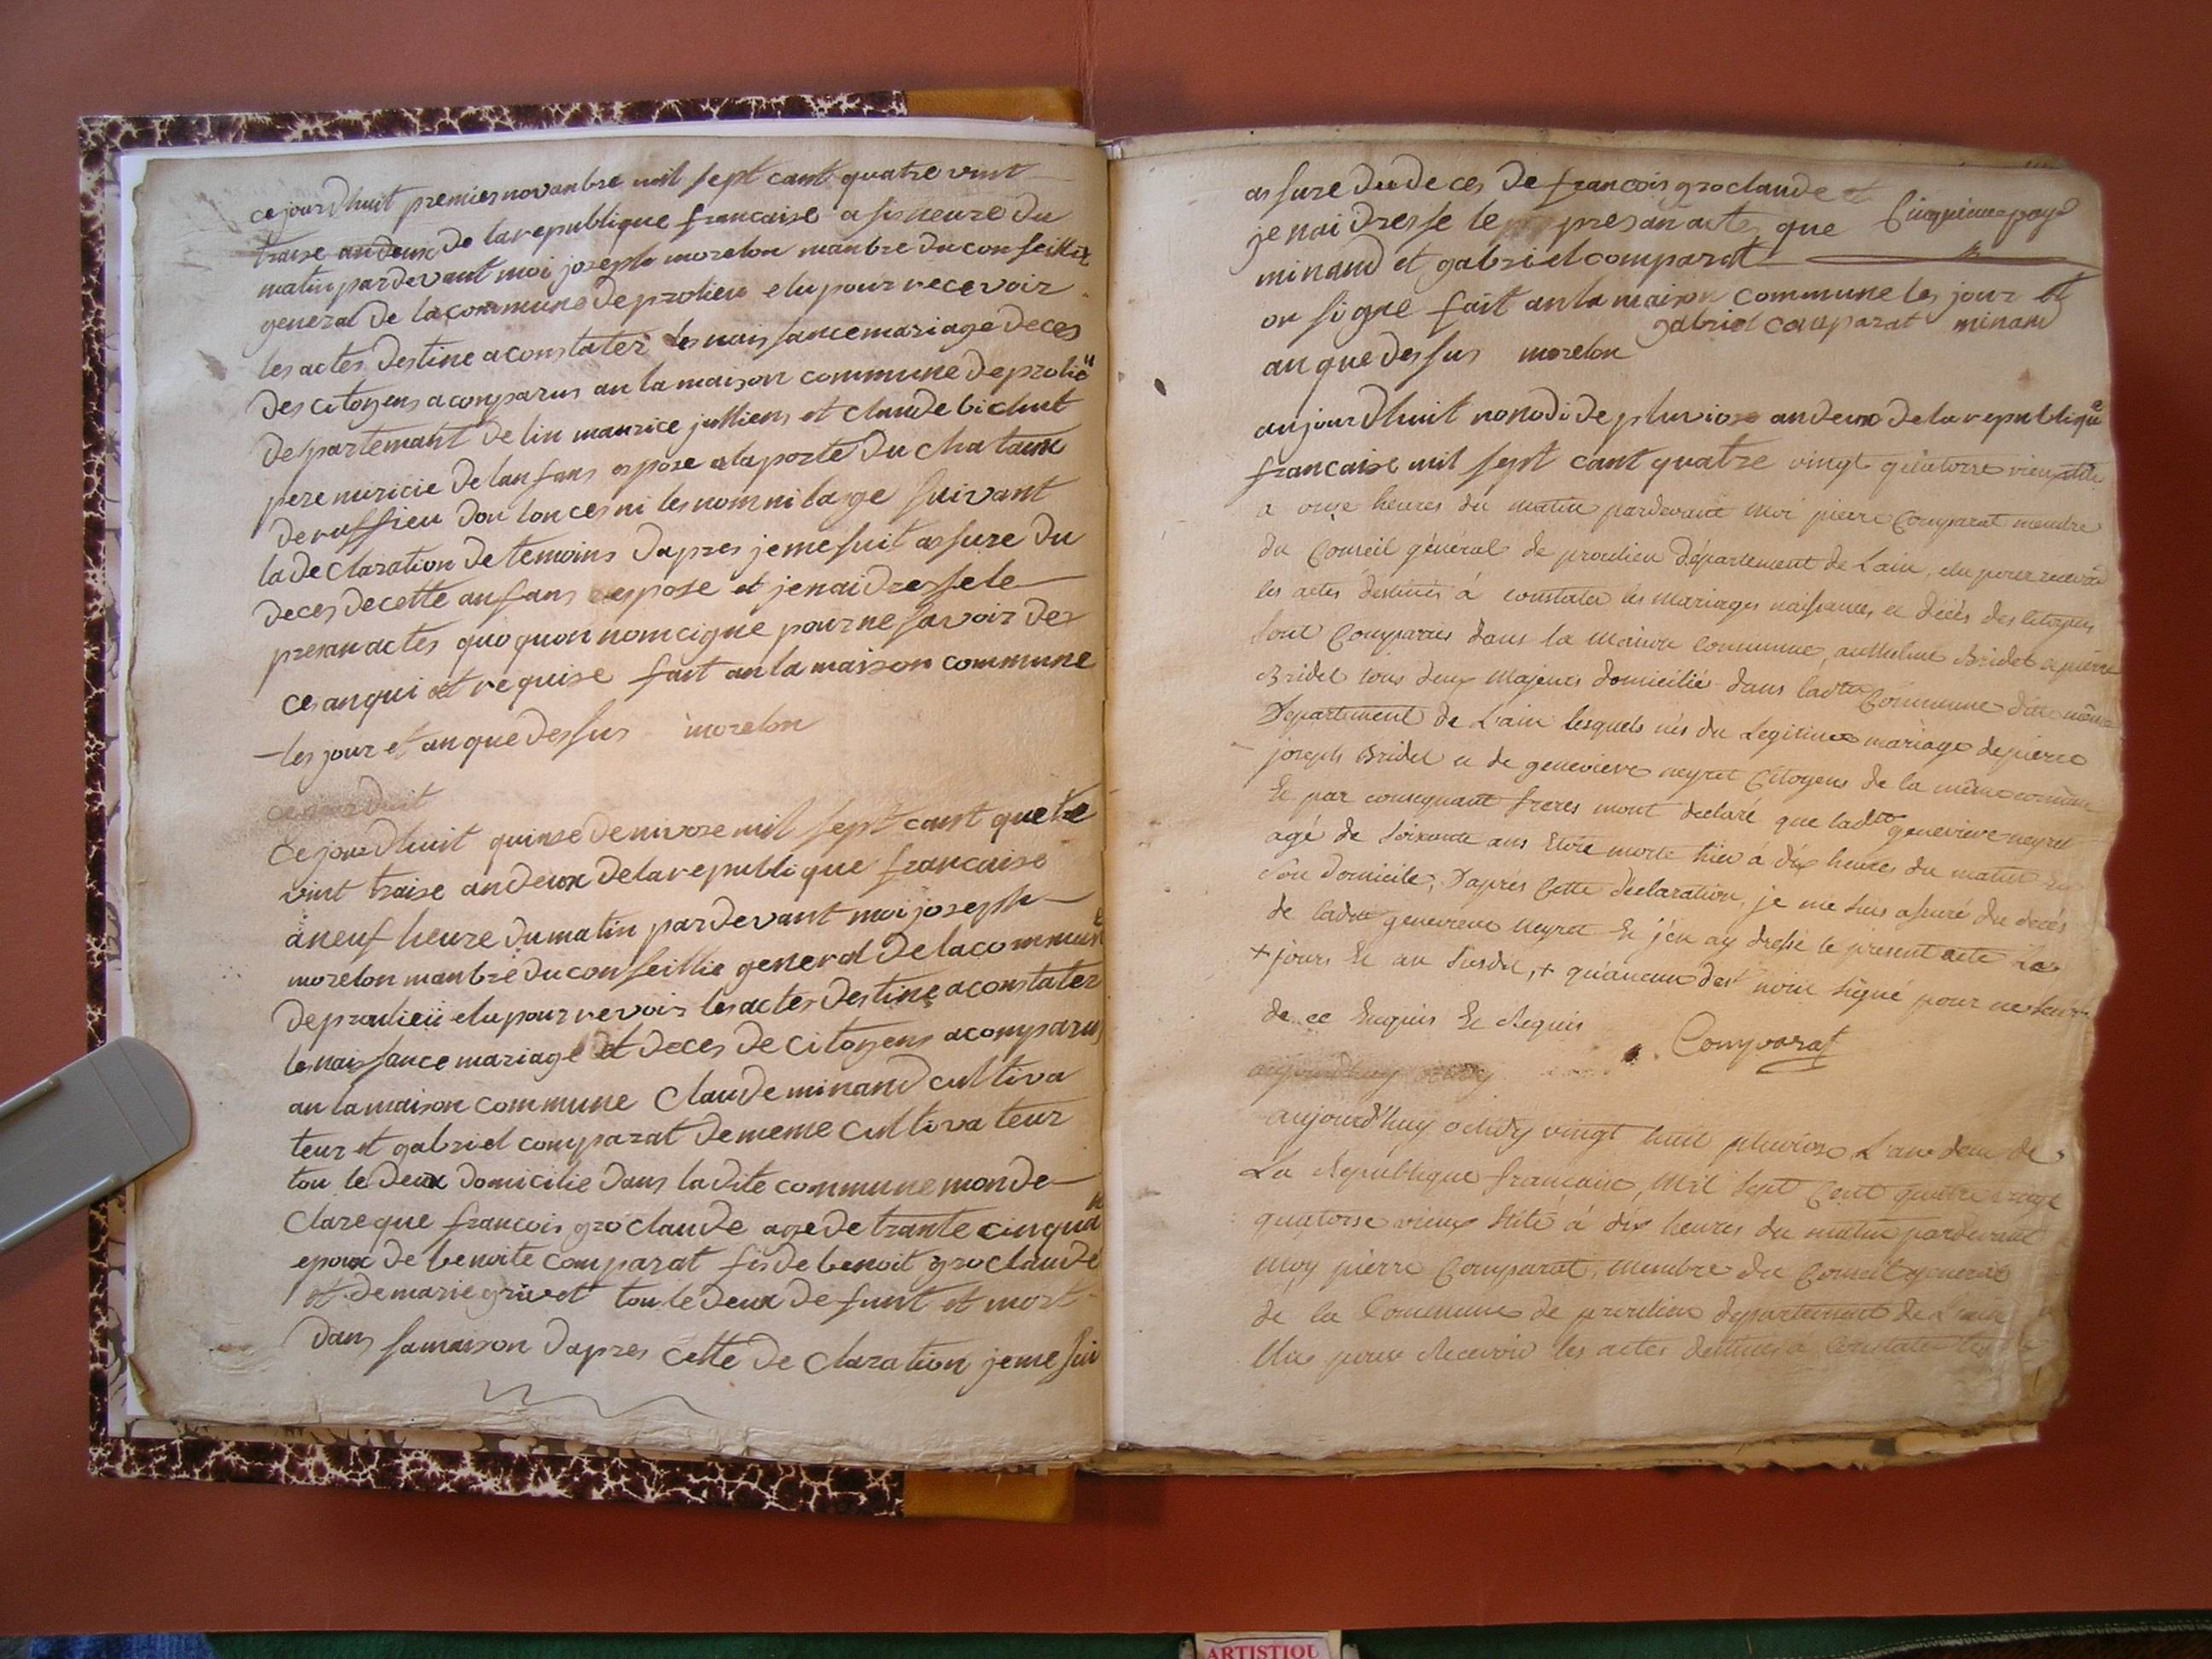 ce jour dhuit premier novanbre mil sept cant quatre vint
traise an deux de la republique francaise a sis heure du
matin par devant moi joseph morelon manbre du conseillie
general de la commune de prolieu elu pour recevoir
les actes destine a constater les naissance mariage deces
des citoyens a comparus an la maison commune de prolieu
departemant de lin maurice jullien et claude bichat
pere nuricie de lanfans espose a la porte du chataux
de ruffieu don lon ces ni les nom ni lage suivant
la declaration de temoins dapres je me suit assure du
deces de cette anfans espose et je nai dresse le
presan actes quoquon nom cigne pour ne savoir de
ces anqui et requise fait an la maison commune
les jour et an que dessus morelon
ce jour duit
ce jour dhuit quinse de nivose mil sept cant quatre
vint traise an deux de la republique francaise
a neuf heure du matin par devant moi joseph
morelon manbre du conseillie general de la commune
de proulieu elu pour revoir les actes destine a constater
les naissance mariage et deces de citoyens a comparus
an la maison commune Claude minand cultiva
teur et gabriel comparat de meme cultivateur
tou le deux domicilie dans la dite commune mon de
clare que francois groclaude age de trante cinq an
epoux de benoite comparat fis de benoit groclaude
et de marie grivet tou le deux defunt et mort
dans sa maison dapres cette declaration je me sui
assure du deces de francois groclaude et
je nai dresse le presan actes que Cinquieme page
minand et gabriel comparat
on signe fait an la maison commune les jour et
gabriel comparat minand
an que dessus morelon
aujourdhuit nonodi de pluviose an deux de la republique
francaise mil sept cant quatre vingt quatorse vieux stile
a onze heures du matin pardevant moi pierre Comparat membre
du Conseil général de proulieu département de L'ain, elu pour recevoir
les actes destinés à constater les mariages naissances et décès des Citoyens
sont Comparus dans la Maison Commune, anthelme Bridet et pierre
Bridet tous deux Majeurs domicilié dans ladte Commune dit même
Département de L'ain lesquels nés du Legitime mariage de pierre
joseph Bridet et de genevieve neyret Citoyens de la même commune
Et par consequant freres mont declaré que ladte genevieve neyret
agé de soixante ans Etoit morte hier à dix heures du matin En
son domicile, D'après Cette declaration, je me suis assuré du decés
de ladte genevieve neyret Et j'en ay dressé le present acte Les
+ jours Et an susdit, + qu'aucun dest nont signé pour ne savoir
de ce Enquis Et Requis
Comparat
aujourdhuy octidy
aujourd'huy octidy vingt huit pluviose L'an deux de
La Republique francaise, Mil sept Cent quatre vingt
quatorse vieux stile à dix heures du matin pardevant
Moy pierre Comparat, Membre du Conseil general
de la Commune de proulieu departement de L'ain
Elu pour Recevoir les actes destinés à Constater les
ARTISTIQU